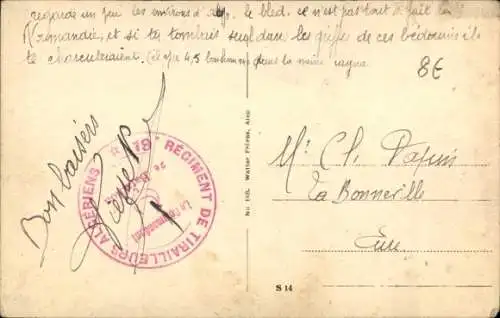 regarde un peu les environs d'Alep. le bled. ce n'est pas tout à fait la
Normandie, et si tu tombais seul dans les griffes de ces bédouins ils
te charcuteraient. (il y a 4,5 bonhommes dans la même
8€
Bons baisers
Pierre
★ 18e RÉGIMENT DE TIRAILLEURS ALGÉRIENS
Le Commandant
No 105. Wattar Frères, Alep
Mr Ch. Papin
La Bonneville
Eure
S 14